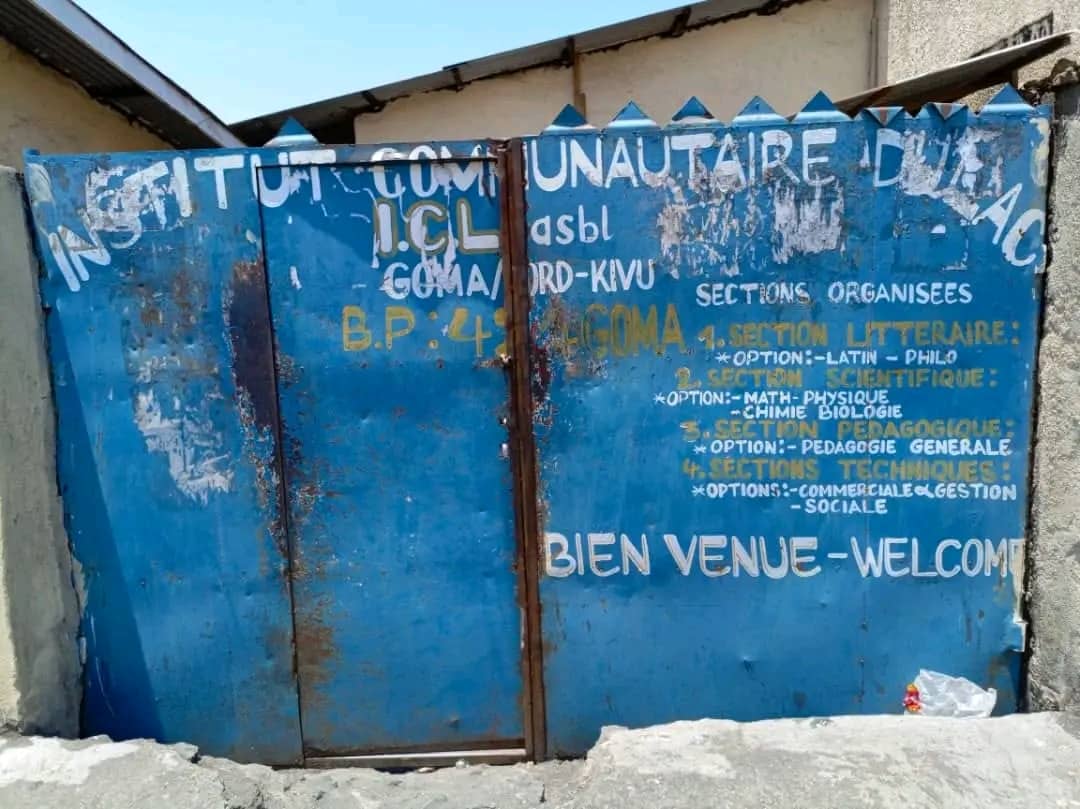 INSTITUT COMMUNAUTAIRE DU LAC
I.C.L asbl
GOMA/ORD-KIVU
B.P: GOMA
SECTIONS ORGANISEES
1. SECTION LITTERAIRE:
*OPTION:-LATIN - PHILO
2. SECTION SCIENTIFIQUE:
*OPTION:-MATH-PHYSIQUE
-CHIMIE BIOLOGIE
3. SECTION PEDAGOGIQUE:
*OPTION:-PEDAGOGIE GENERALE
4. SECTIONS TECHNIQUES:
*OPTIONS:-COMMERCIALE & GESTION
-SOCIALE
BIEN VENUE-WELCOME